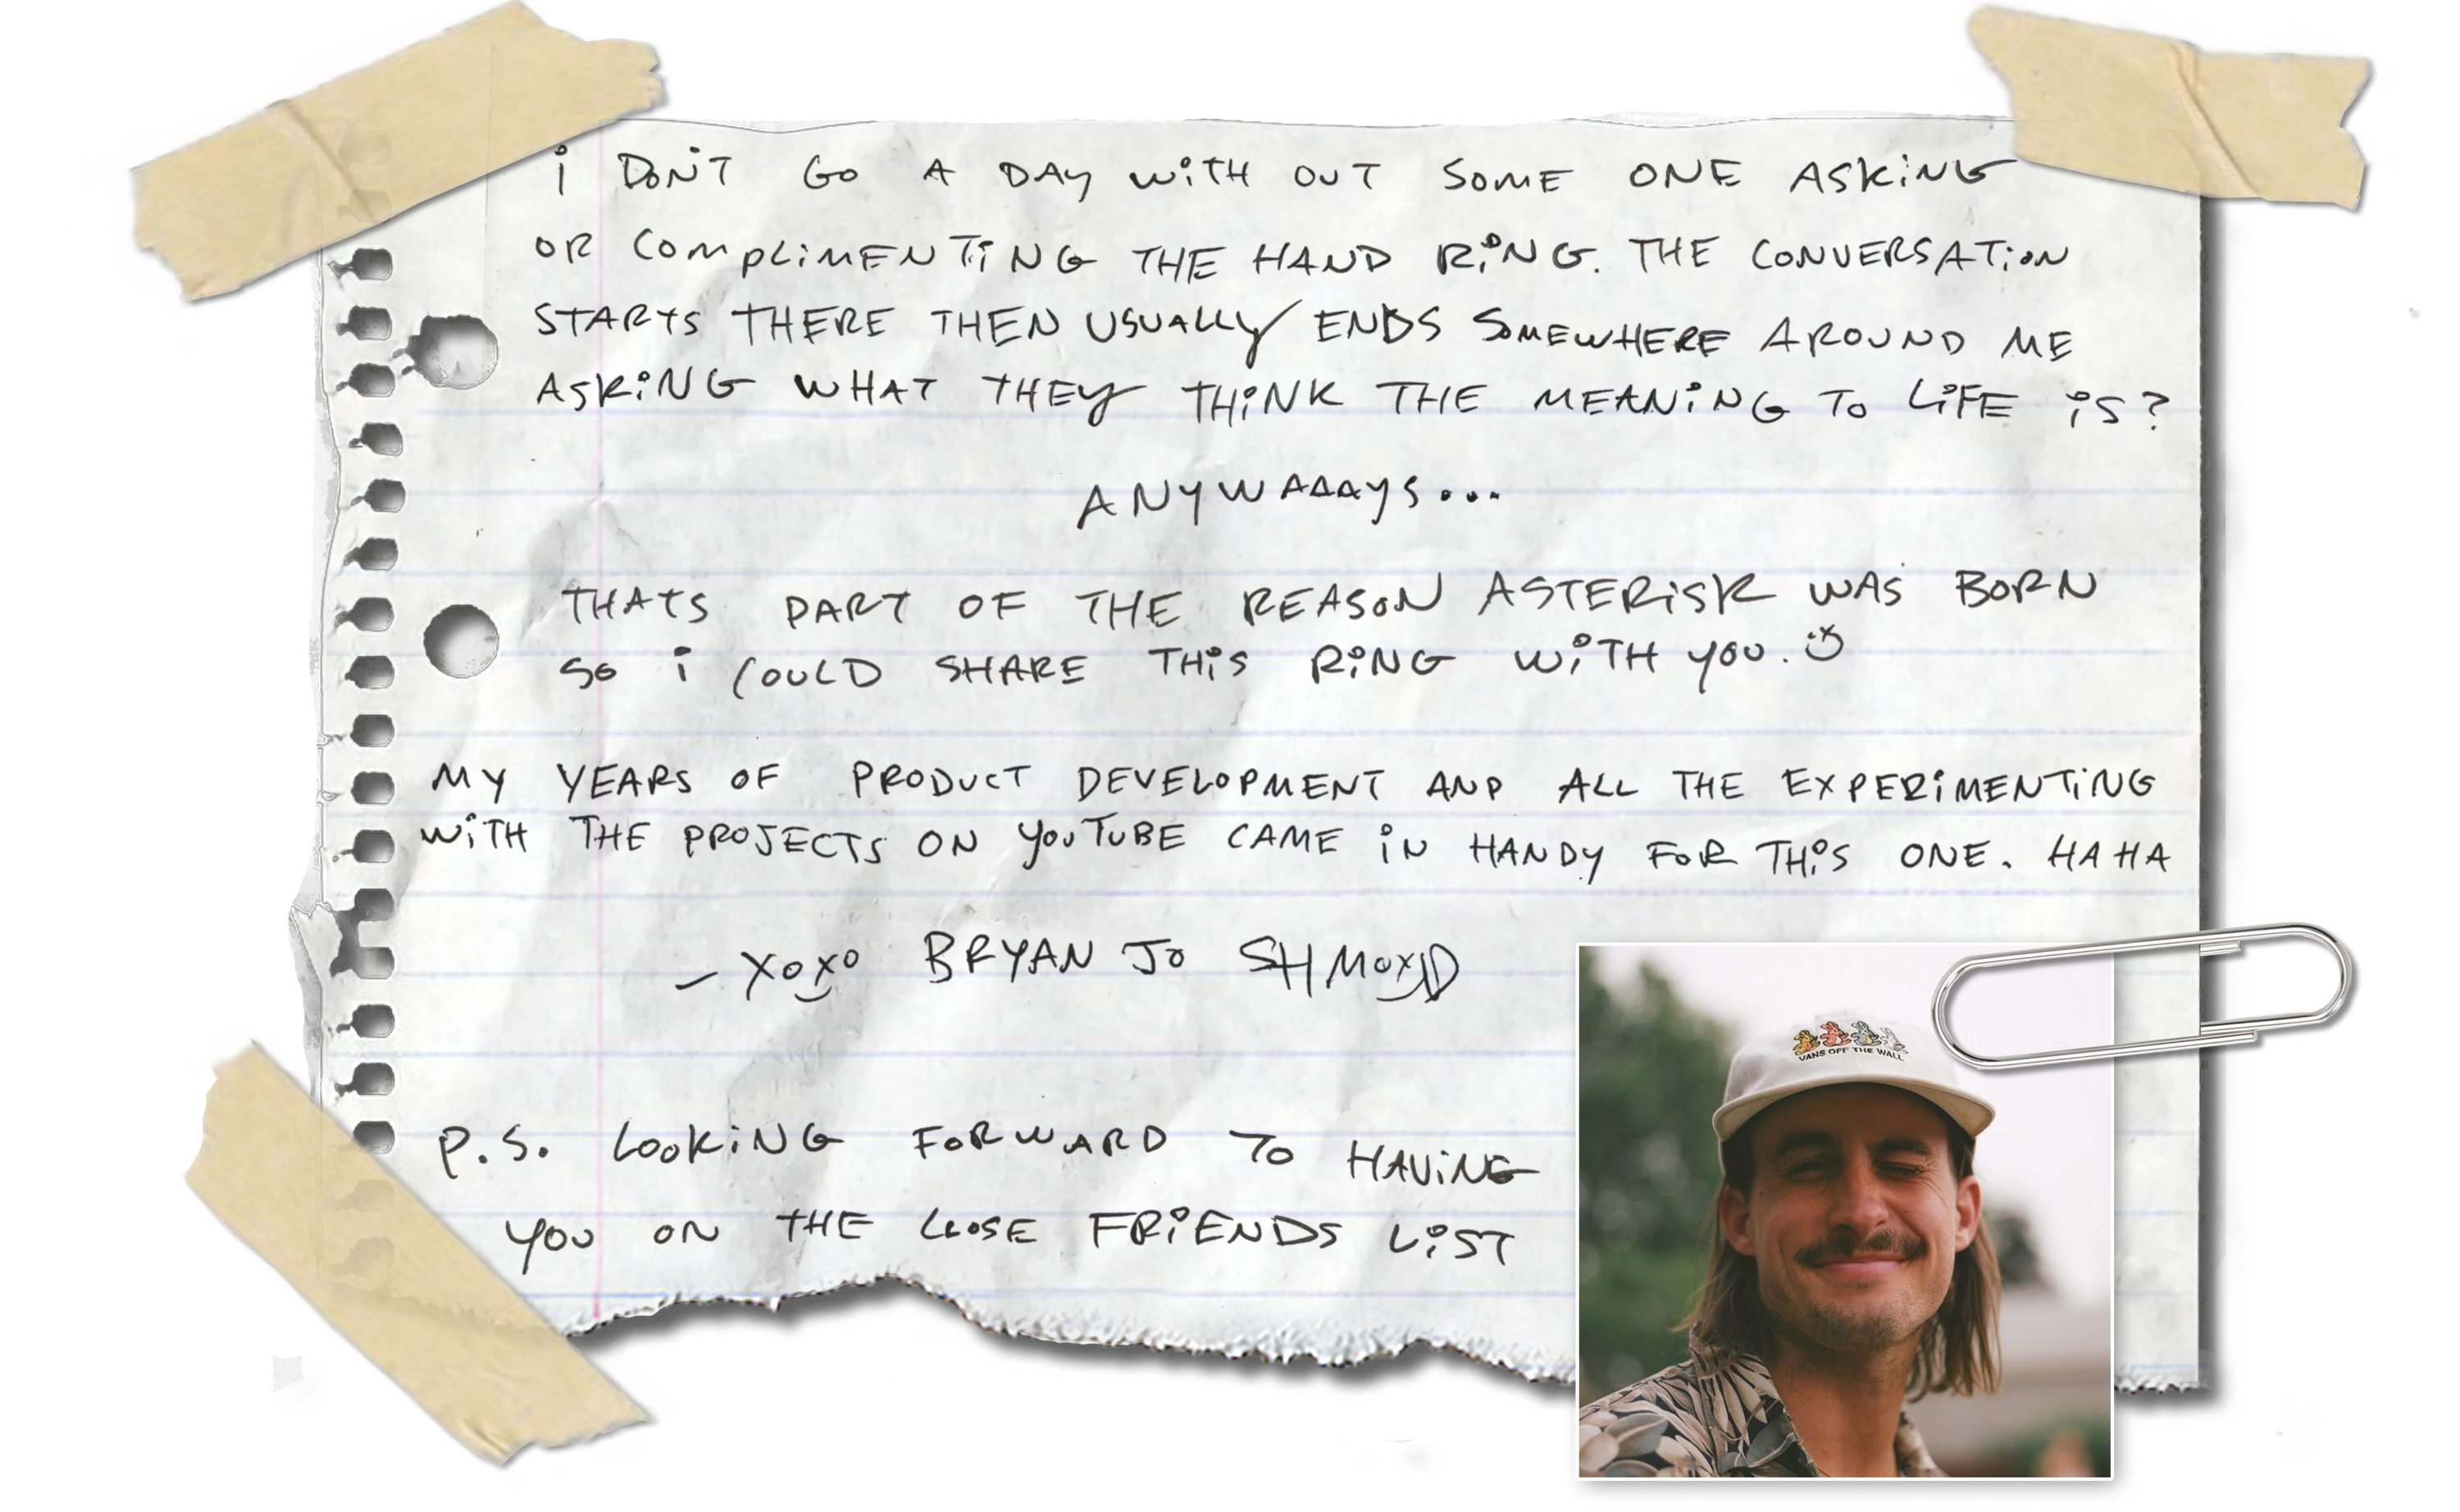 i DON'T GO A DAY WiTH OUT SOME ONE ASKiNG
OR COMPLiMENTiNG THE HAND RiNG. THE CONVERSATiON
STARTS THERE THEN USUALLY ENDS SOMEWHERE AROUND ME
ASKiNG WHAT THEY THiNK THE MEANiNG TO LiFE iS?
ANYWAAAYS...
THATS PART OF THE REASON ASTERiSK WAS BORN
SO i COULD SHARE THiS RiNG WiTH YOU.
MY YEARS OF PRODUCT DEVELOPMENT AND ALL THE EXPERiMENTiNG
WiTH THE PROJECTS ON YOUTUBE CAME iN HANDY FOR THiS ONE. HAHA
- XOXO BRYAN JO SHMOXD
P.S. LOOKiNG FORWARD TO HAViNG
YOU ON THE CLOSE FRiENDS LiST
VANS OFF THE WALL